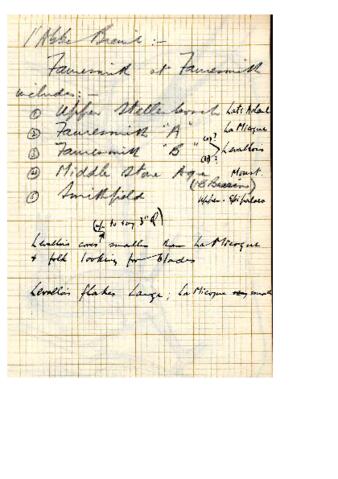 L'Abbé Breuil :-
Fauresmith at Fauresmith
includes :-
① Upper Stellenbosch Late Acheul
② Fauresmith "A" La Micoque
③ Fauresmith "B" Levallois
④ Middle Stone Age Moust.
⑤ Smithfield Upper
Levallois cores smaller than La Micoque
& folk looking for blades
Levallois flakes large; La Micoque small